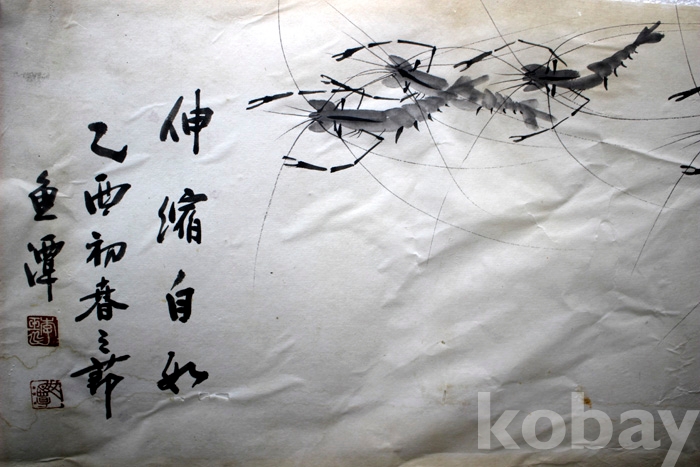 伸缩自如
乙酉初春之節
鱼潭
kobay